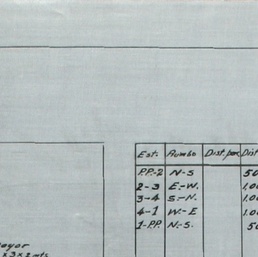 Est. Rumbo Dist. par. Dist
P.P.-2 N-S 50
2-3 E-W. 1,00
3-4 S-N. 1,00
4-1 W-E 1,00
1-P.P. N-S. 50
ayor
x 3 x 2 mts.